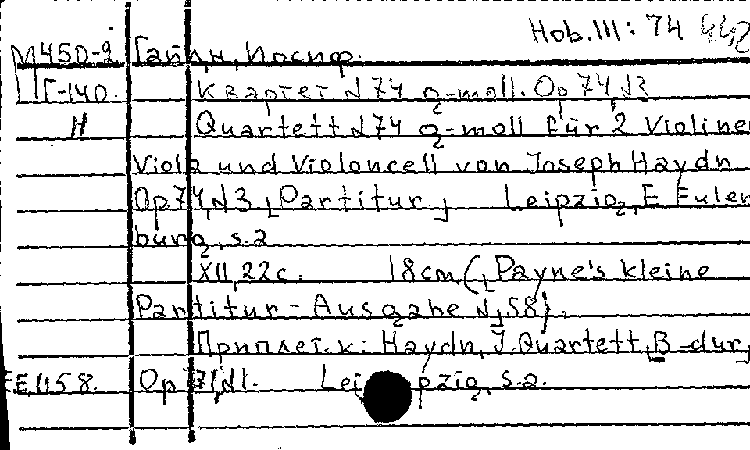 Hob. III: 74
М450-2 Гайдн, Иосиф.
ЦГ-140. Квартет N 74 g-moll. Op 74, N3
Н Quartett N 74 g-moll für 2 Violinen
Viola und Violoncell von Joseph Haydn
Op 74, N 3 [Partitur] Leipzig, E. Eulen
burg, s.a
XII, 22 с. 18 cm. ([Payne's kleine
Partitur-Ausgabe N 58].
Приплет. к: Haydn, J. Quartett, B-dur,
EE 1158. Op 71, N1. Leipzig, s.a.